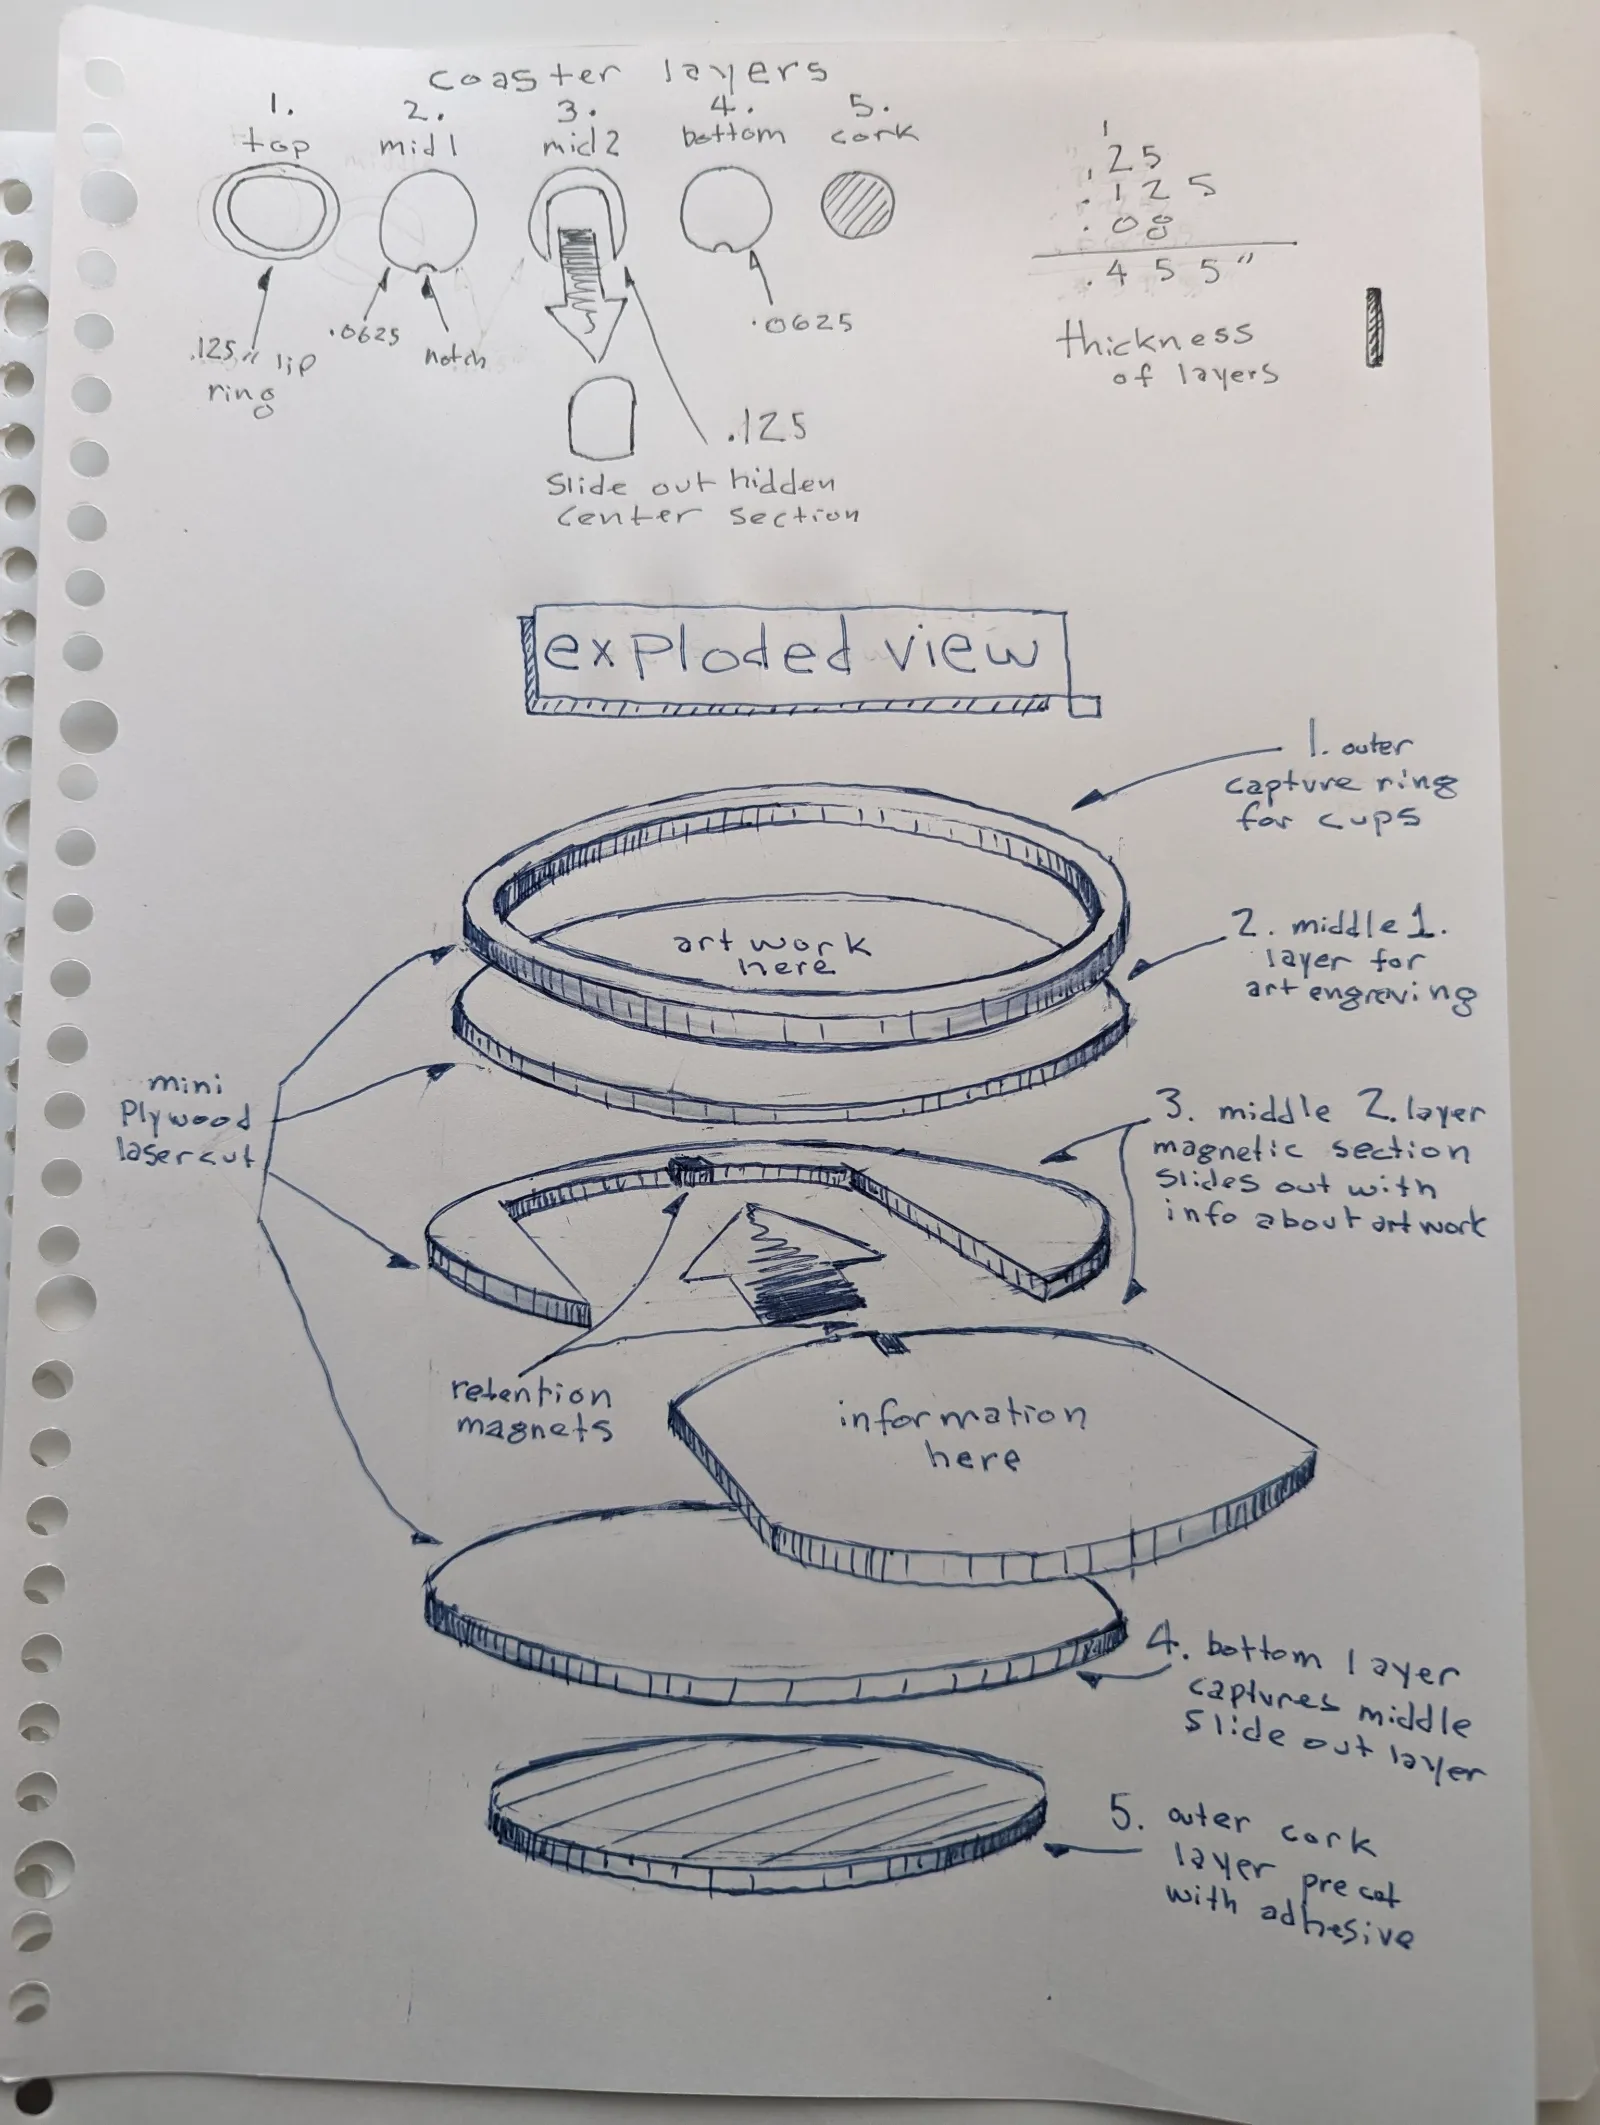 coaster layers
1. 2. 3. 4. 5.
top mid1 mid2 bottom cork
.125" lip
ring
.0625
notch
.0625
.125
slide out hidden
center section
1
.25
.125
.08
.455"
thickness
of layers
exploded view
1. outer
capture ring
for cups
art work
here
2. middle 1.
layer for
art engraving
mini
plywood
laser cut
3. middle 2. layer
magnetic section
slides out with
info about art work
retention
magnets
information
here
4. bottom layer
captures middle
slide out layer
5. outer cork
layer precut
with adhesive